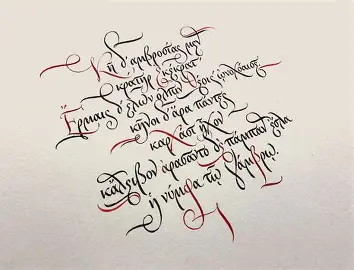 Κῆ δ' ἀμβροσίας μὲν
κράτηρ ἐκέκρατ'
Ἔρμαις δ' ἔλων ὄλπιν θέοις οἰνοχόαισε
κῆνοι δ' ἄρα πάντες
καρχάσι' ἦχον
κἄλειβον ἀράσαντο δὲ πάμπαν ἔσλα
νύμφα τῷ γάμβρῳ